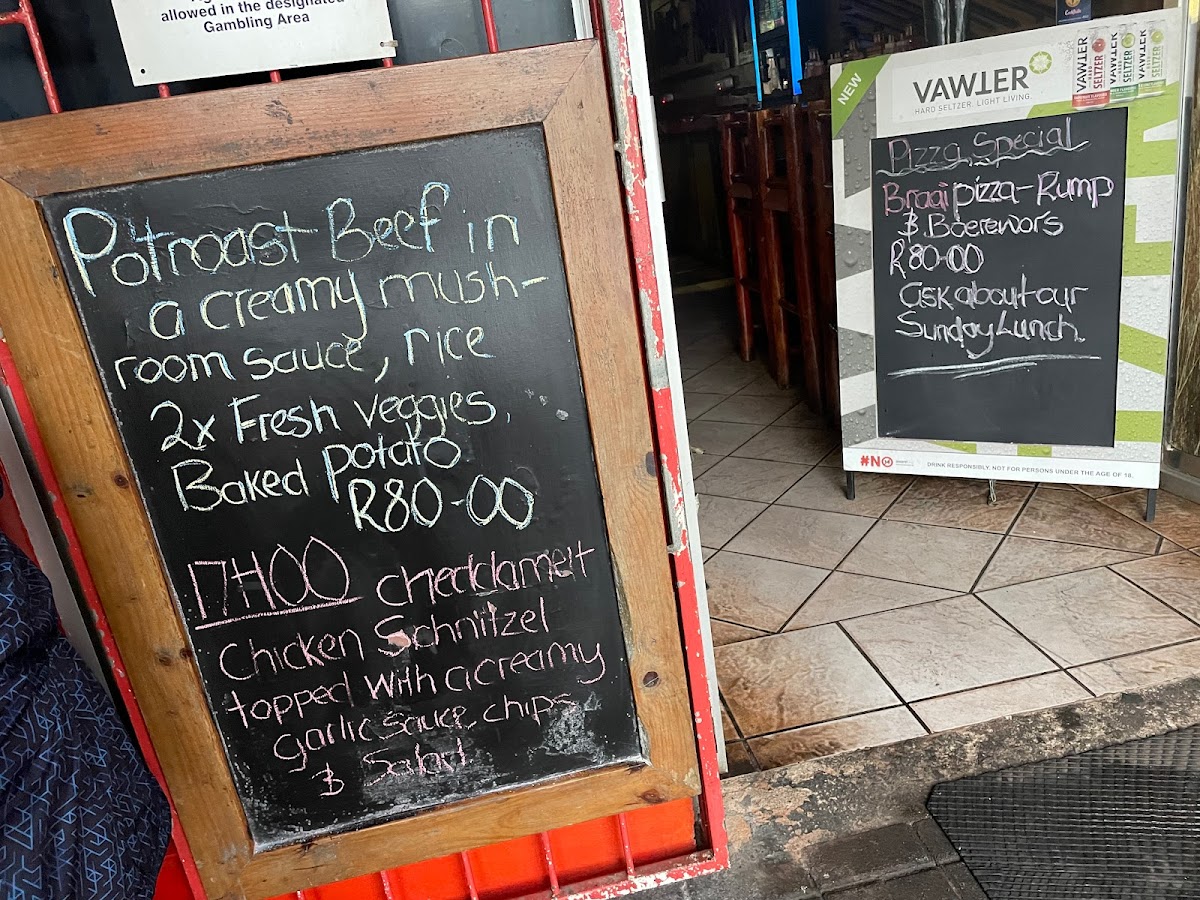 allowed in the designated
Gambling Area
Potroast Beef in
a creamy mush-
room sauce, rice
2x Fresh veggies,
Baked potato
R80-00
17H00 cheddamelt
Chicken Schnitzel
topped with a creamy
garlic sauce, chips
& Salad
NEW
VAWTER
HARD SELTZER. LIGHT LIVING.
VAWTER
SELTZER
VAWTER
SELTZER
VAWTER
SELTZER
Pizza Special
Braai pizza - Rump
& Boerewors
R80-00
ask about our
Sunday Lunch
#NO
DRINK RESPONSIBLY. NOT FOR PERSONS UNDER THE AGE OF 18.